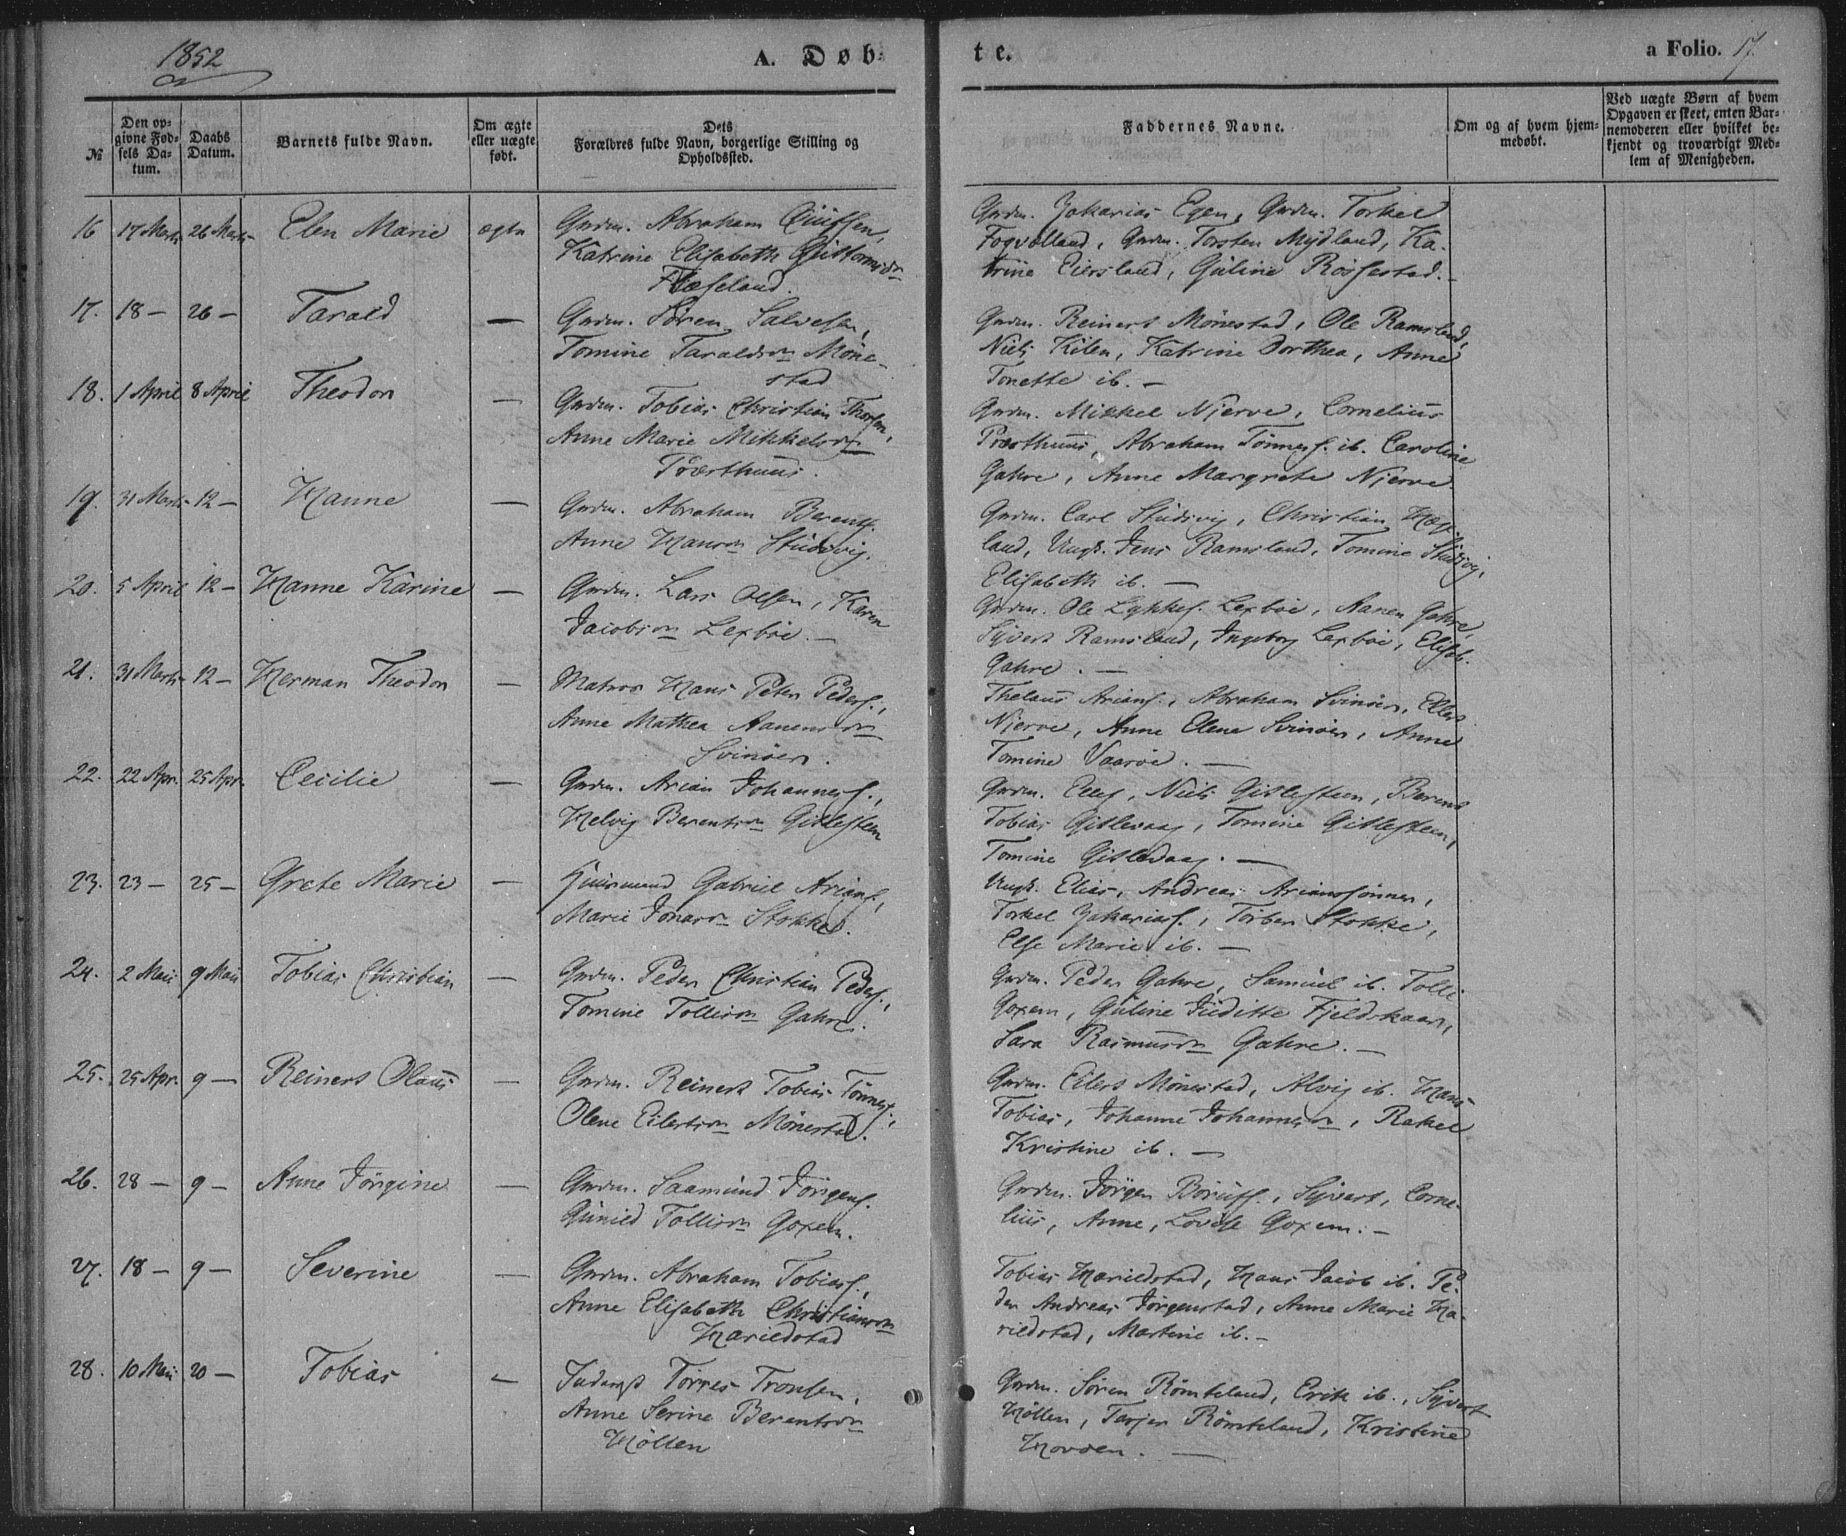 1852
A. Døb-
te.
a Folio. 17.
№
Den op-
givne Fød-
sels Da-
tum.
Daabs
Datum.
Barnets fulde Navn.
Om ægte
eller uægte
født.
Dets
Forældres fulde Navn, borgerlige Stilling og
Opholdssted.
Faddernes Navne.
Om og af hvem hjem-
medøbt.
Ved uægte Børn af hvem
Opgaven er skeet, enten Bar-
nemoderen eller hvilket be-
kjendt og troværdigt Med-
lem af Menigheden.
16 17 Marts 26 Marts Elen Marie ægte
Grdm. Abraham
Katrine Elisabeth
Grdm. Zakarias Egen, Grdm. Torkel
Fogvolland, Grdm. Torsten Mydland, Ka-
trine Eiersland, Guline Røssestad.
17. 18 — 26 — Tarald —
Grdm. Søren Salvesen,
Tomine Taraldsdn Møne-
stad
Grdm. Reinert Mønestad, Ole Ramsland,
Niels Kilen, Katrine Dorthea, Anne
Tonette ib. —
18. 1 April 8 April Theodor —
Grdm. Tobias Christian Thorsen,
Anne Marie Mikkelsdn
Præsthuus.
Grdm. Mikkel Njerve, Cornelius
Præsthuus, Abraham Tønnes. ib. Caroline
Gahre, Anne Margrete Njerve
19. 31 Marts 12 — Hanne —
Grdm. Abraham Berents.
Anne Hansdn Studevig.
Grdm. Carl Studevig, Christian Hæge-
land, Ungk. Jens Ramsland, Tomine Studevig,
Elisabeth ib. —
20. 5 April 12 — Hanne Karine —
Grdm. Lars Olsen, Karen
Jacobsdn Lexböe. —
Grdm. Ole Lykkes. Lexböe, Aanen Gahre,
Syvert Ramsland, Ingeborg Lexböe, Elisab.
Gahre. —
21. 31 Marts 12 — Herman Theodor —
Matros Hans Peter Peders.,
Anne Mathea Aanensdn
Svinøer.
Thelaus Arians., Abraham Svinøer, Ellert
Njerve, Anne Elene Svinøer, Anne
Tomine Vaarøe. —
22. 22 Apr. 25 Apr. Cecilie —
Grdm. Arian Johannes.,
Helvig Berentsdn Gislesteen
Grdm. Elles, Niels Gislesteen, Berent
Tobias Gislevaag, Tomine Gislesteen,
Tomine Gislevaag. —
23. 23 — 25 — Grete Marie —
Huusmand Gabriel Arians.,
Marie Jonasdn Stokke.
Ungk. Elias, Andreas Arianssønner,
Torkel Zakarias., Torber Stokke,
Else Marie ib. —
24. 2 Mai 9 Mai Tobias Christian —
Grdm. Peder Christian Peders.,
Tomine Tollisdn Gahre.
Grdm. Peder Gahre, Samuel ib. Tolli
Goxem, Guline Juditte Fjeldskaar,
Sara Rasmusdn Gahre. —
25. 25 Apr. 9 — Reinert Olaus —
Grdm. Reinert Tobias Tønnes.,
Olene Eilertsdn Mønestad.
Grdm. Eilert Mønestad, Alvig ib. Hans
Tobias, Johanne Johannesdn, Rakel
Kristine ib. —
26. 28 — 9 — Anne Jørgine —
Grdm. Saamund Jørgens.
Gunild Tollisdn Goxem.
Grdm. Jørgen Boruss., Syvert, Corne-
lius, Anne, Lovise Goxem. —
27. 18 — 9 — Severine —
Grdm. Abraham Tobias.,
Anne Elisabeth Christiansdn
Harildstad
Tobias Harildstad, Hans Jacob ib. Pe-
der Andreas Jørgenstad, Anne Marie Ha-
rildstad, Martine ib. —
28. 10 Mai 20 — Tobias —
Inderst Torres Tronsen,
Anne Serine Berentsdn
Høllen
Grdm. Søren Rømteland, Erik ib., Syvert
Høllen, Tarjer Rømteland, Kristine
Hovden. —